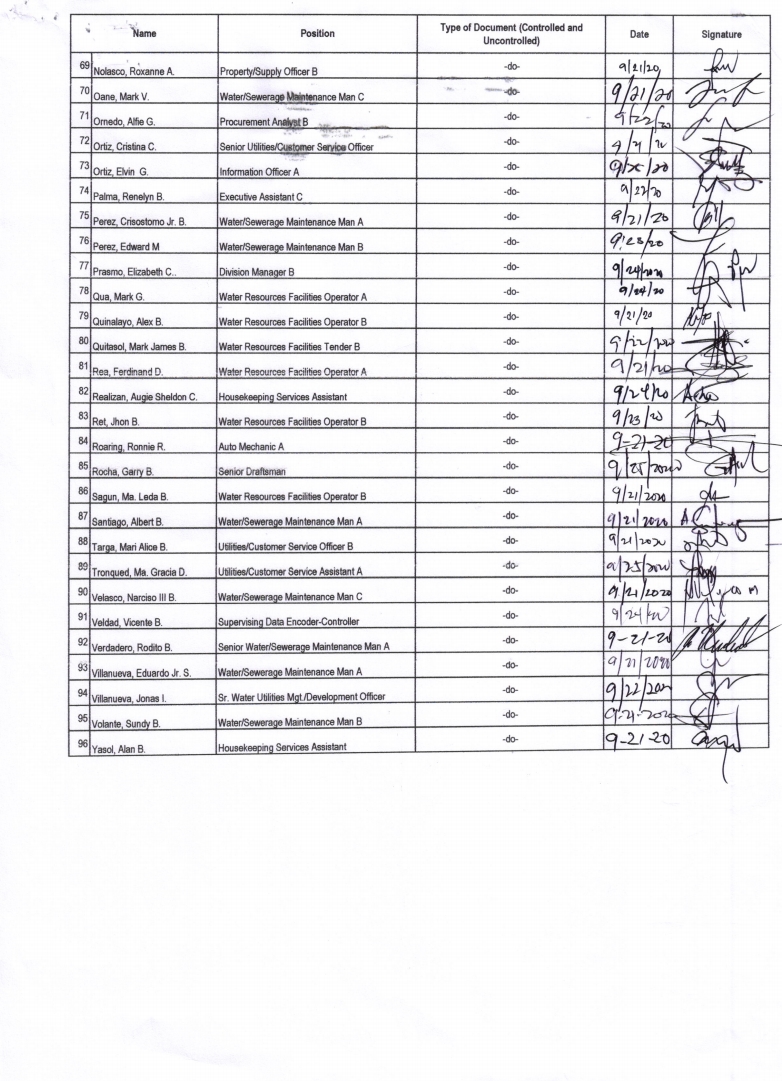 Name Position Type of Document (Controlled and Uncontrolled) Date Signature
69 Nolasco, Roxanne A. Property/Supply Officer B -do- 9/21/20
70 Oane, Mark V. Water/Sewerage Maintenance Man C -do- 9/21/20
71 Ornedo, Alfie G. Procurement Analyst B -do- 9/22/20
72 Ortiz, Cristina C. Senior Utilities/Customer Service Officer -do- 9/21/20
73 Ortiz, Elvin G. Information Officer A -do- 9/25/20
74 Palma, Renelyn B. Executive Assistant C -do- 9/22/20
75 Perez, Crisostomo Jr. B. Water/Sewerage Maintenance Man A -do- 9/21/20
76 Perez, Edward M Water/Sewerage Maintenance Man B -do- 9/23/20
77 Prasmo, Elizabeth C.. Division Manager B -do- 9/24/2020
78 Qua, Mark G. Water Resources Facilities Operator A -do- 9/24/20
79 Quinalayo, Alex B. Water Resources Facilities Operator B -do- 9/21/20
80 Quitasol, Mark James B. Water Resources Facilities Tender B -do- 9/22/2020
81 Rea, Ferdinand D. Water Resources Facilities Operator A -do- 9/21/20
82 Realizan, Augie Sheldon C. Housekeeping Services Assistant -do- 9/24/20
83 Ret, Jhon B. Water Resources Facilities Operator B -do- 9/23/20
84 Roaring, Ronnie R. Auto Mechanic A -do- 9-21-20
85 Rocha, Garry B. Senior Draftsman -do- 9/25/2020
86 Sagun, Ma. Leda B. Water Resources Facilities Operator B -do- 9/21/2020
87 Santiago, Albert B. Water/Sewerage Maintenance Man A -do- 9/21/2020
88 Targa, Mari Alice B. Utilities/Customer Service Officer B -do- 9/21/2020
89 Tronqued, Ma. Gracia D. Utilities/Customer Service Assistant A -do- 9/25/2020
90 Velasco, Narciso III B. Water/Sewerage Maintenance Man C -do- 9/21/2020
91 Veldad, Vicente B. Supervising Data Encoder-Controller -do- 9/24/20
92 Verdadero, Rodito B. Senior Water/Sewerage Maintenance Man A -do- 9-21-20
93 Villanueva, Eduardo Jr. S. Water/Sewerage Maintenance Man A -do- 9/21/2020
94 Villanueva, Jonas I. Sr. Water Utilities Mgt./Development Officer -do- 9/22/2020
95 Volante, Sundy B. Water/Sewerage Maintenance Man B -do- 9-21-2020
96 Yasol, Alan B. Housekeeping Services Assistant -do- 9-21-20